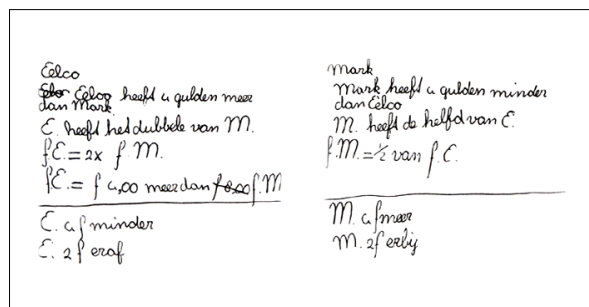 Eelco
Eelco heeft 4 gulden meer
dan Mark.
E. heeft het dubbele van M.
f E. = 2x f M.
f E. = f 4,00 meer dan f. M
E. 4 f minder
E. 2 f eraf
Mark
Mark heeft 4 gulden minder
dan Eelco
M. heeft de helfd van E.
f. M. = ½ van f. E.
M. 4 f meer
M. 2 f erbij